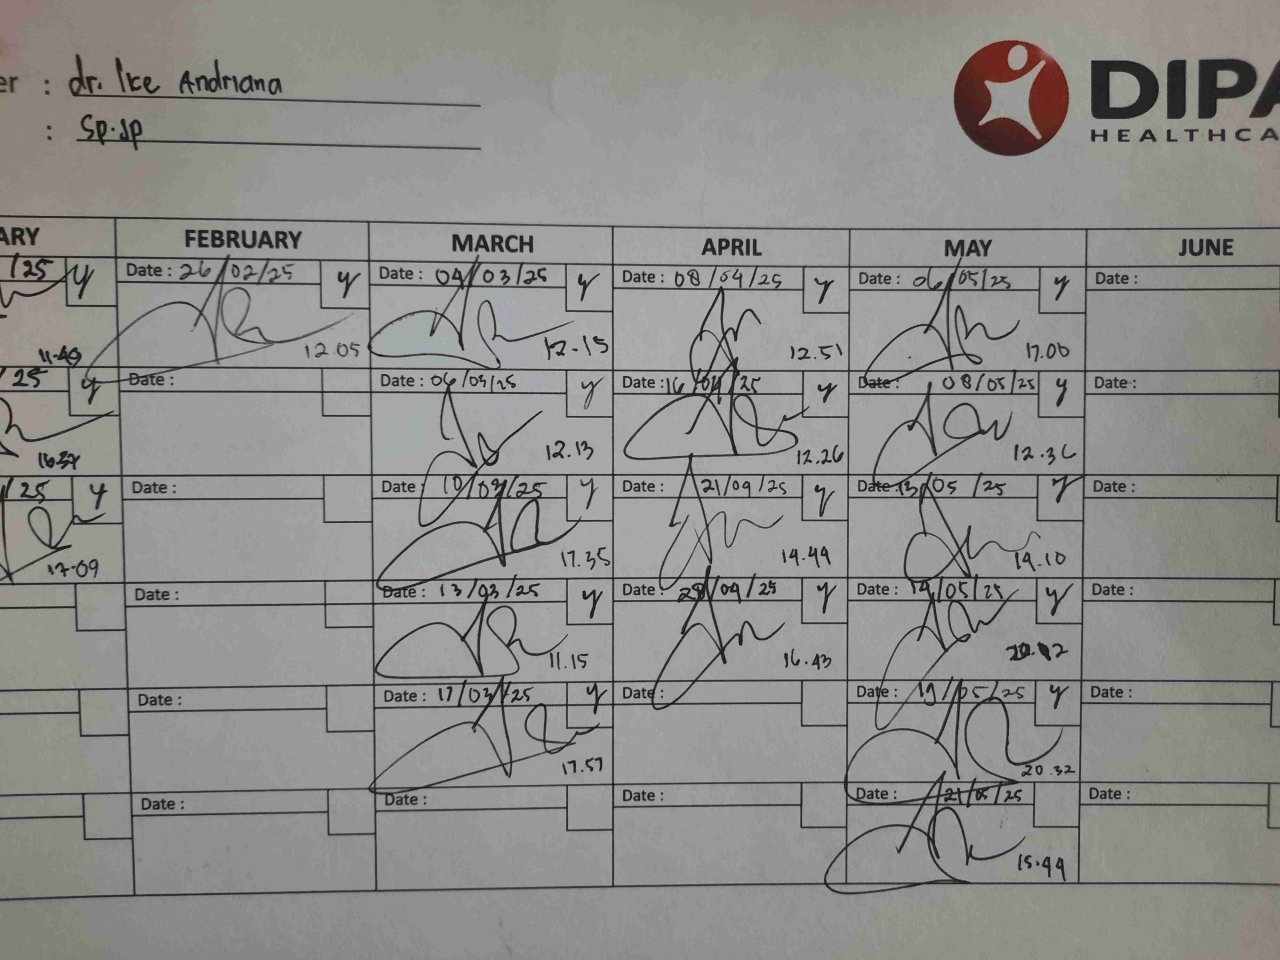 er : dr. Ike Andriana
: Sp.Jp
DIPA
HEALTHCA
ARY FEBRUARY MARCH APRIL MAY JUNE
/25 y Date : 26/02/25 y Date : 04/03/25 y Date : 08/04/25 y Date : 06/05/25 y Date :
11.40 12.05 12.15 12.51 17.00
25 y Date : Date : 06/03/25 y Date : 16/04/25 y Date : 08/05/25 y Date :
16.37 12.13 12.26 12.36
/25 y Date : Date : 10/03/25 y Date : 21/04/25 y Date : 13/05/25 y Date :
17.09 17.35 14.49 14.10
Date : Date : 13/03/25 y Date : 28/04/25 y Date : 14/05/25 y Date :
11.15 16.43
Date : Date : 17/03/25 y Date : Date : 19/05/25 y Date :
17.57 20.32
Date : Date : Date : Date : 21/05/25 Date :
15.44